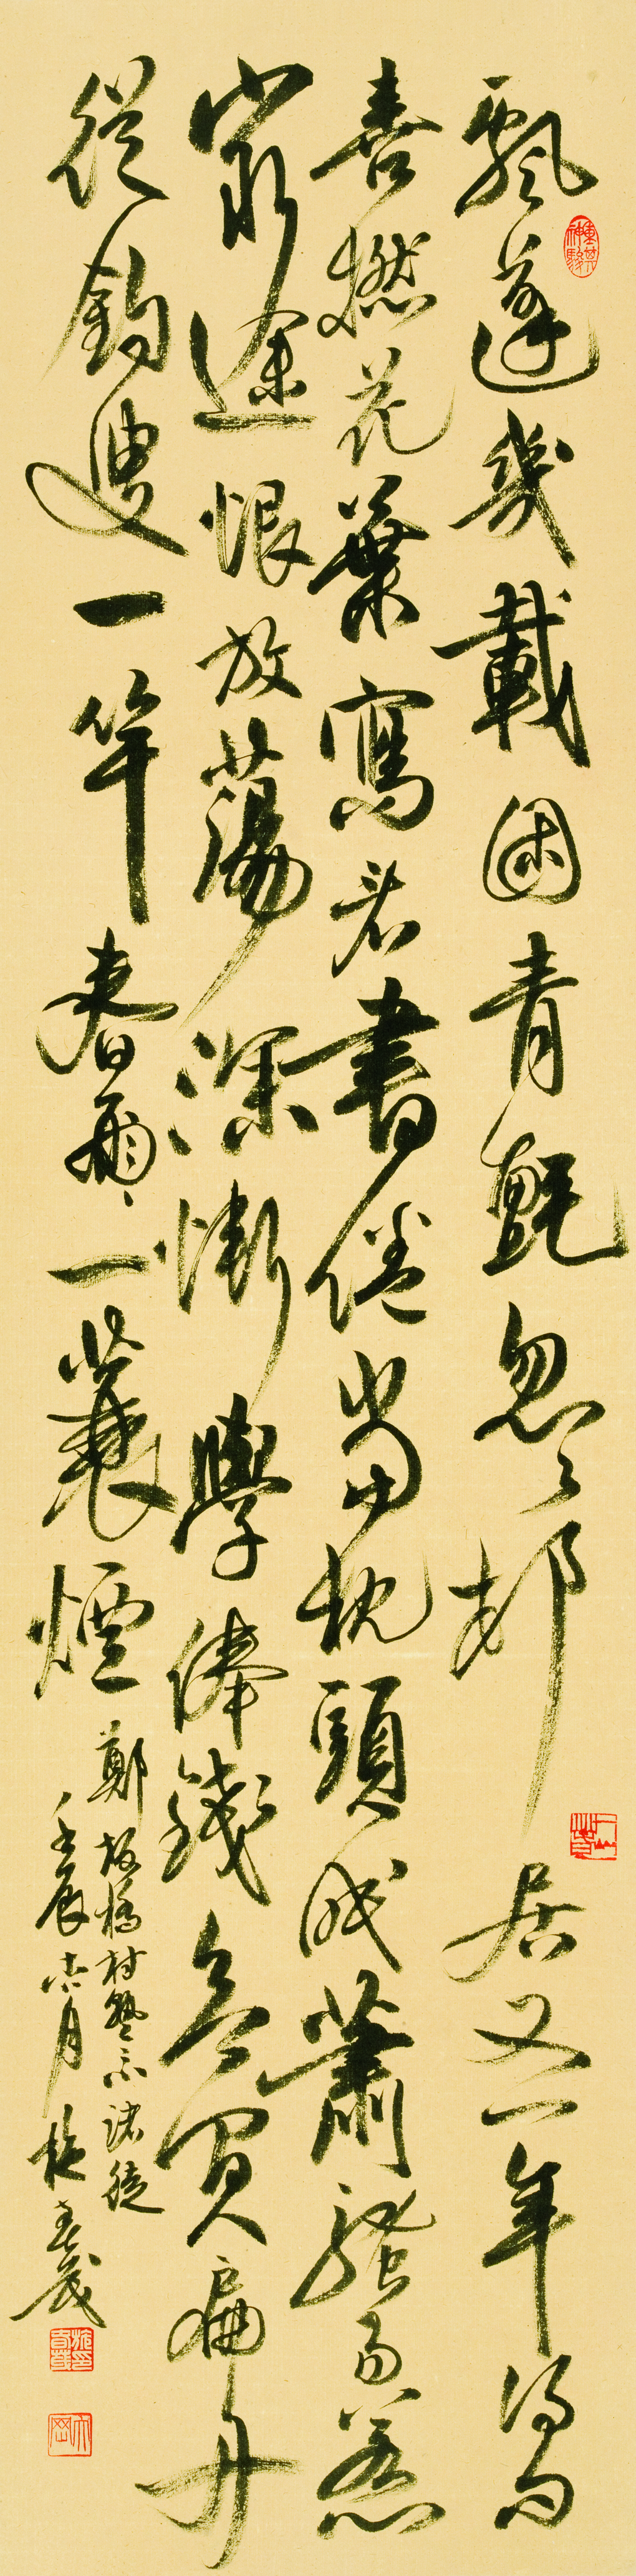 飄蓬幾載困青氈忽々邨居又一年得句
喜撚花葉寫看書倦當枕頭眠蕭騷易惹
窮途恨放蕩深慚學俸錢欲買扁舟
從釣叟一竿春雨一蓑煙
鄭板橋村塾示諸徒
壬辰 月